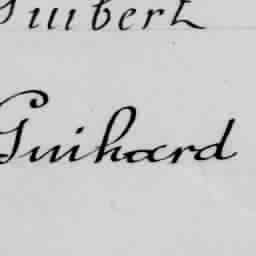 Guibert
Guihard